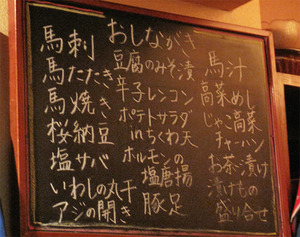 おしながき
馬刺
馬たたき
馬焼き
桜納豆
塩サバ
いわしの丸干
アジの開き
豆腐のみそ漬
辛子レンコン
ポテトサラダ
inちくわ天
ホルモンの
塩唐揚
豚足
馬汁
高菜めし
じゃこ高菜
チャーハン
お茶漬け
漬けもの
盛り合せ